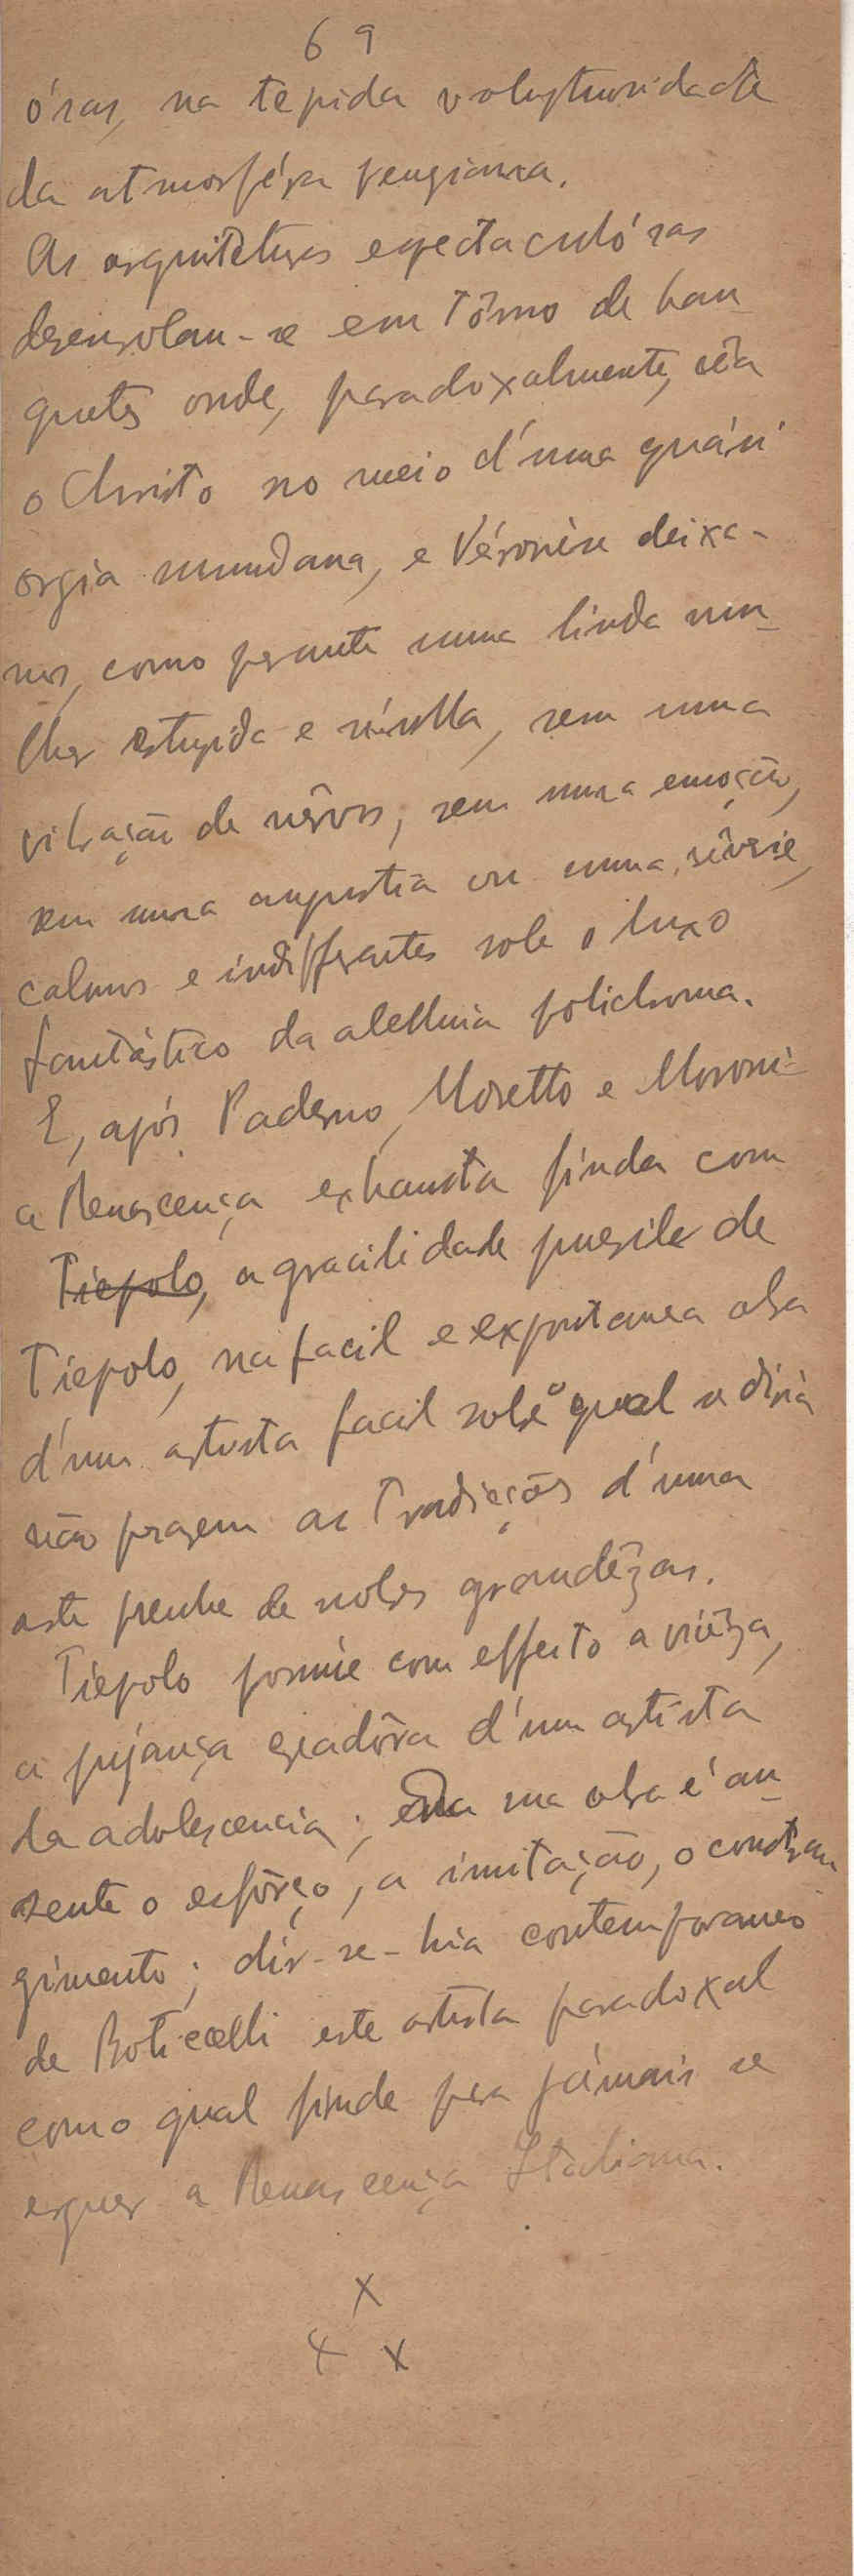 69
óras, na tepida voluptuosidade
da atmosféra
As arquiteturas espectaculósas
desenrolam-se em tôrno de ban_
quetes onde, paradoxalmente, cêa
o Christo no meio d'uma quási
orgia mundana, e Véronèse deixa-
nos, como perante uma linda mu_
lher estupida e núa, sem uma
vibração de nêrvos, sem uma emoção,
sem uma angustia ou uma rêverie,
calmos e indifferentes sob o luxo
fantástico da alelluia polichroma.
E, após Paderno, Moretto e Moroni-
a Renascença exhausta finda com
Tiepolo, a gracilidade puerile de
Tiepolo, na facil e expontanea obra
d'um artista facil sobre o qual se diria
não pezarem as tradicções d'uma
arte prenhe de nobres grandêzas.
Tiepolo possúe com effeito a viêza,
a pujança creadôra d'um artista
da adolescencia; na sua obra é au_
sente o esfôrço, a imitação, o constran
gimento; dir-se-hia contemporaneo
de Boticcelli este artista paradoxal
com o qual finde pra jámais se
erguer a Renascença Italiana.
x
x x